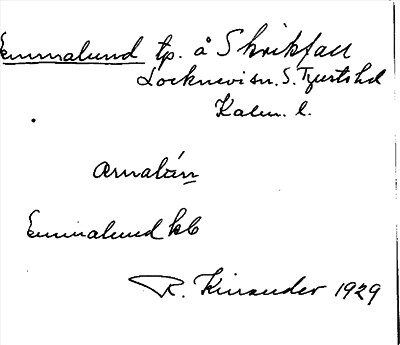 Emmalund tp. å Skrikfall
Locknevi sn. S. Tjusts hd
Kalm. l.
Emmalund kb
R. Kinander 1929